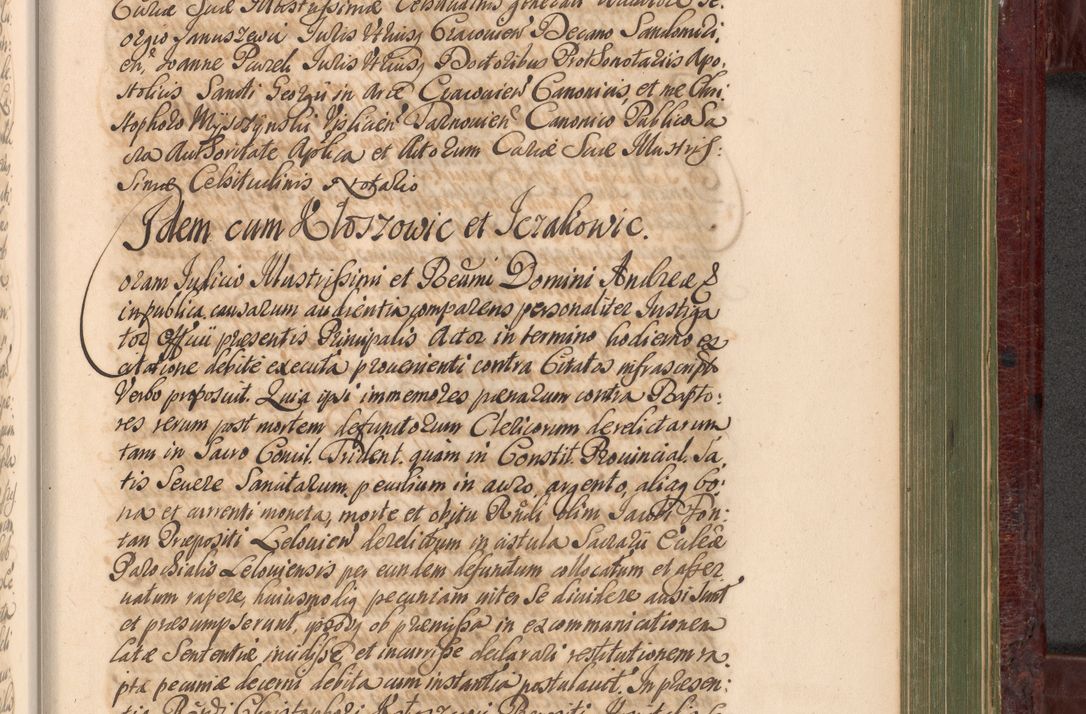 Curiæ Suæ Illustrissimæ Celsitudinis generali
orgio Januszewicz Juris Utriusq Cracovien Decano Sandomiri,
en, Joanne Pawzek Juris Utriusq Doctoribus Prothonotariis Apo,
stolicis Sancti Georgii in Arce Cracovien Canonicis, et me Chri,
stophoro Myszczynski Vislicien Tarnovien Canonico Publico Sa
cra Authoritate Aplica et Actorum Curiæ Suæ Illustris:
simæ Celsitudinis Notario
Idem cum Kloszowic et Jczakowic.
oram Judicio Illustrissimi et Reumi Domini Andreæ &
in publica causarum audientia comparens personaliter Instiga
tor Officii præsentis Principalis Actor in termino hodierno ex
citatione debite executa provenienti contra Citatos infrascriptos
Verbo proposuit. Quia ipsi immemores pænarum contra Rapto:
res rerum post mortem defunctorum Clericorum derelictarum
tam in Sacro Concil. Trident. quam in Constit. Provincial. Sa
tis Severe Sancitarum, peculium in auro, argento, aliaq bo:
na et currenti moneta, morte et obitu Rndi olim Jacobi Fon:
tan Præpositi Leloviens derelictum in cistula Sacrarii Eccleæ
Parochialis Leloviensis per eundem defunctum collocatum et asser
vatum rapere, huiusmodiq pecuniam inter se dividere ausi sunt
et præsumpserunt, ipsosq ob præmissa in excommunicationem
latæ Sententiæ incidisse et incurrisse declarari restitutionem ra,
ptæ pecuniæ decerni debita cum instantia postulavit. In præsen:
tia Rndi Christophori